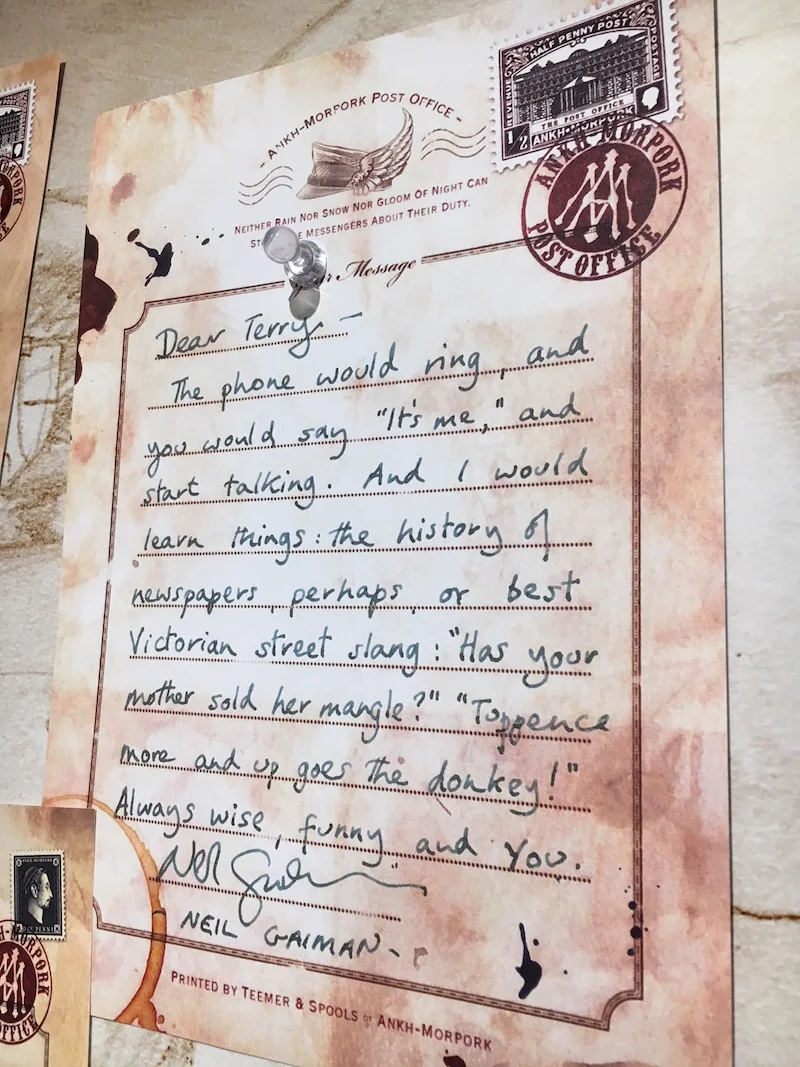 - ANKH-MORPORK POST OFFICE -
NEITHER RAIN NOR SNOW NOR GLOOM OF NIGHT CAN
MESSENGERS ABOUT THEIR DUTY.
HALF PENNY POST
REVENUE
POSTAGE
THE POST OFFICE
1/2 ANKH-MORPORK
ANKH-MORPORK
POST OFFICE
Message
Dear Terry -
The phone would ring, and
you would say "It's me," and
start talking. And I would
learn things: the history of
newspapers, perhaps, or best
Victorian street slang: "Has your
mother sold her mangle?" "Tuppence
more and up goes the donkey!"
Always wise, funny and You.
Neil Gaiman
NEIL GAIMAN -
PRINTED BY TEEMER & SPOOLS OF ANKH-MORPORK